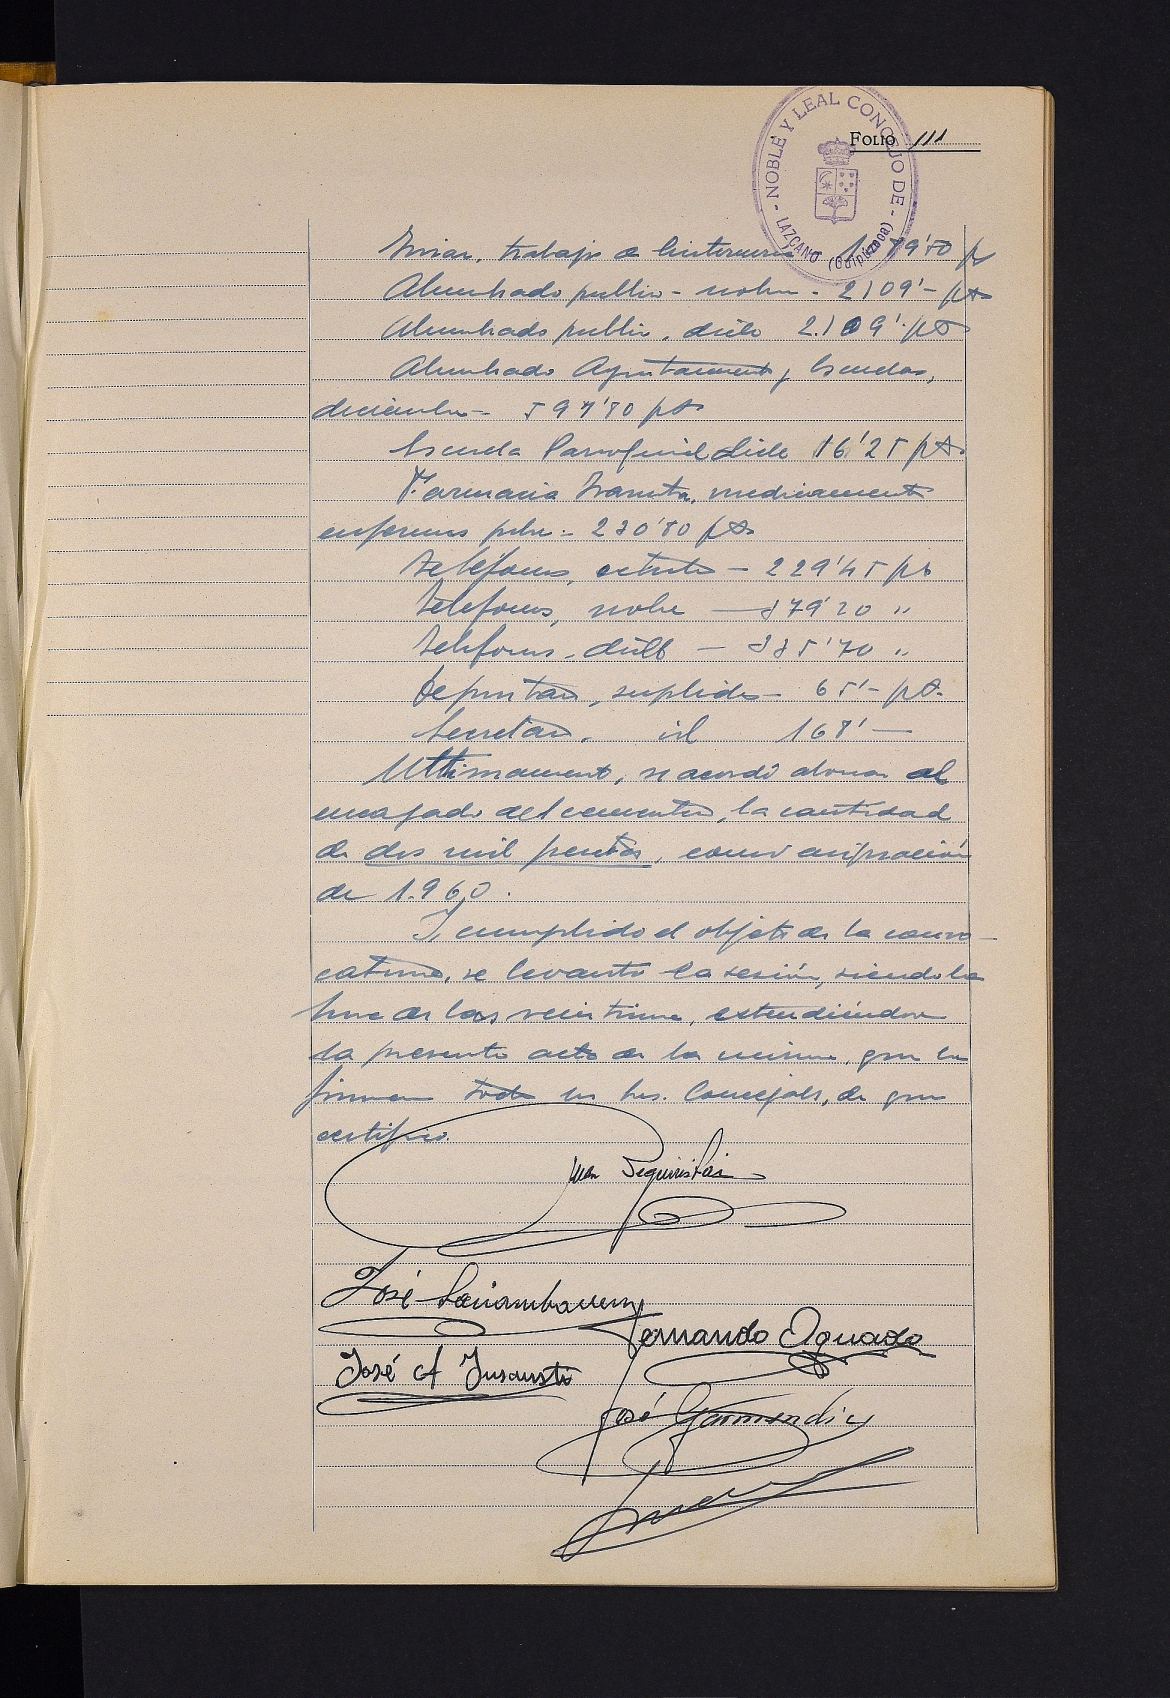 NOBLE Y LEAL CONCEJO DE
LAZCANO (Guipúzcoa)
FOLIO 111
trabajo
Alumbrado publico - nobre - 2109'- pts
Alumbrado publico, dicbe 2.109'- pts
Alumbrado Ayuntamiento y Escuelas,
diciembre - 597'80 pts
Escuela Parroquial dicbe 16'25 pts
Farmacia Iraneta, medicamentos
enfermos pobres - 230'80 pts
Teléfonos, octubre - 229'45 pts
Telefonos, nobre - 379'20 "
Telefonos, dicbe - 335'70 "
Depositario, suplidos - 65'- pts.
Secretario, id 168'-
Ultimamente, se acordó abonar al
encargado del cementerio, la cantidad
de dos mil pesetas, como asignación
de 1.960.
Y, cumplido el objeto de la convo-
catoria, se levantó la sesión, siendo la
hora de las veintiuna, extendiéndose
la presente acta de la misma, que la
firman todos los Sres. Concejales, de que
certifico.
Juan Beguiristain
José
Fernando Aguado
José A Insausti
José Garmendia